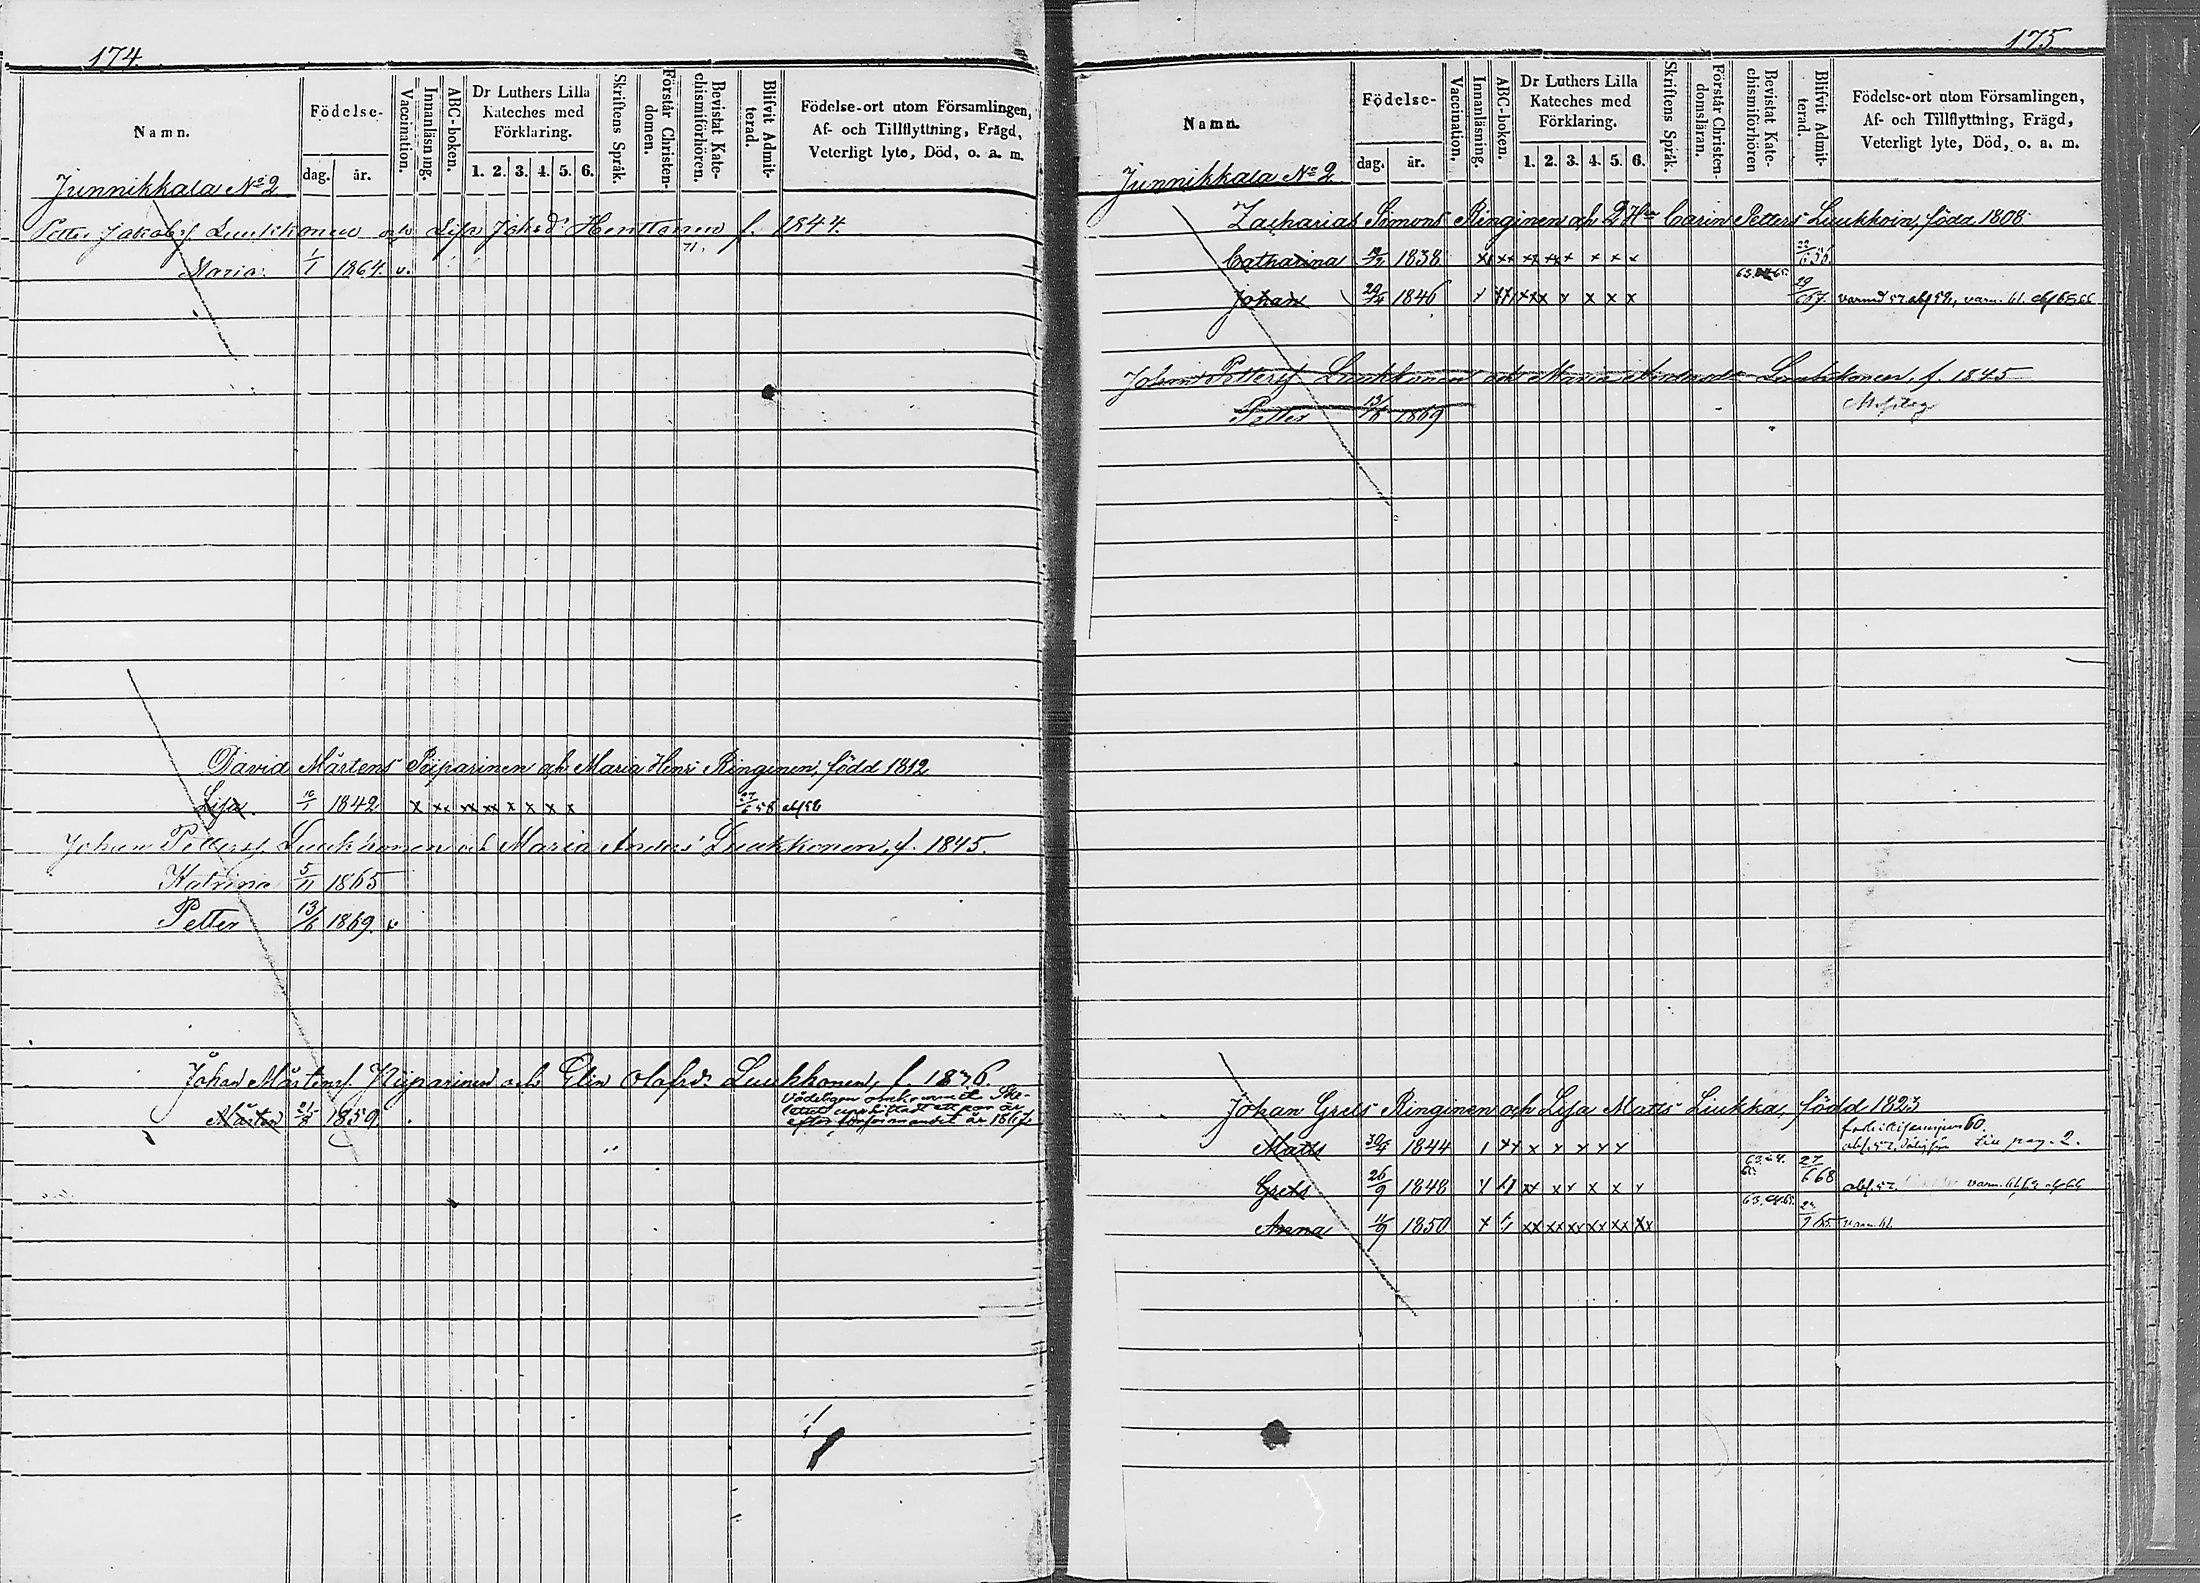 174.
Namn.
Födelse-
dag.
år.
Vaccination.
Innanläsning.
ABC-boken.
Dr Luthers Lilla
Kateches med
Förklaring.
1. 2. 3. 4. 5. 6.
Skriftens Språk.
Förstår Christen-
domen.
Bevistat Kate-
chismiförhören.
Blifvit Admit-
terad.
Födelse-ort utom Församlingen,
Af- och Tillflyttning, Frägd,
Veterligt lyte, Död, o. a. m.
Junnikkala No 2
Petter Jakobs. Luukkonen och Lisa Johsd. Henttonen f. 1844.
71.
Maria. 1/1 1864. v.
David Mårtens Piiparinen och Maria Henr. Ringinen, född 1812
Lisa. 10/1 1842 x xx xx xx x x x x 27/6 58 abs 58
Johan Petters. Luukkonen och Maria Anders Luukkonen, f. 1845.
Katrina 5/11 1865
Petter 13/6 1869. v.
Johan Mårtens. Piiparinen och Elin Olofsd. Luukkonen, f. 1836.
Mårten 1859.
175
Namn.
Födelse-
dag.
år.
Vaccination.
Innanläsning.
ABC-boken.
Dr Luthers Lilla
Kateches med
Förklaring.
1. 2. 3. 4. 5. 6.
Skriftens Språk.
Förstår Christen-
domsläran.
Bevistat Kate-
chismiförhören
Blifvit Admit-
terad.
Födelse-ort utom Församlingen,
Af- och Tillflyttning, Frägd,
Veterligt lyte, Död, o. a. m.
Junnikkala No 2
Zacharias Simons Ringinen och 2 H:u Carin Petters Luukkoin, född 1808
Catharina 1838 x xx xx xx x x x x 22/6 56
Johan 1846 x xx xxx x x x x
Johan Petters. Luukkonen och Maria Andersd. Luukkonen, f. 1845
Petter 13/6 1869
Johan Grels Ringinen och Lisa Matts Liukka, född 1823
Matts 30/4 1844 Till pag. 2.
Grels 26/9 1848 27/6 68
Anna 11/9 1850 varn. 61.